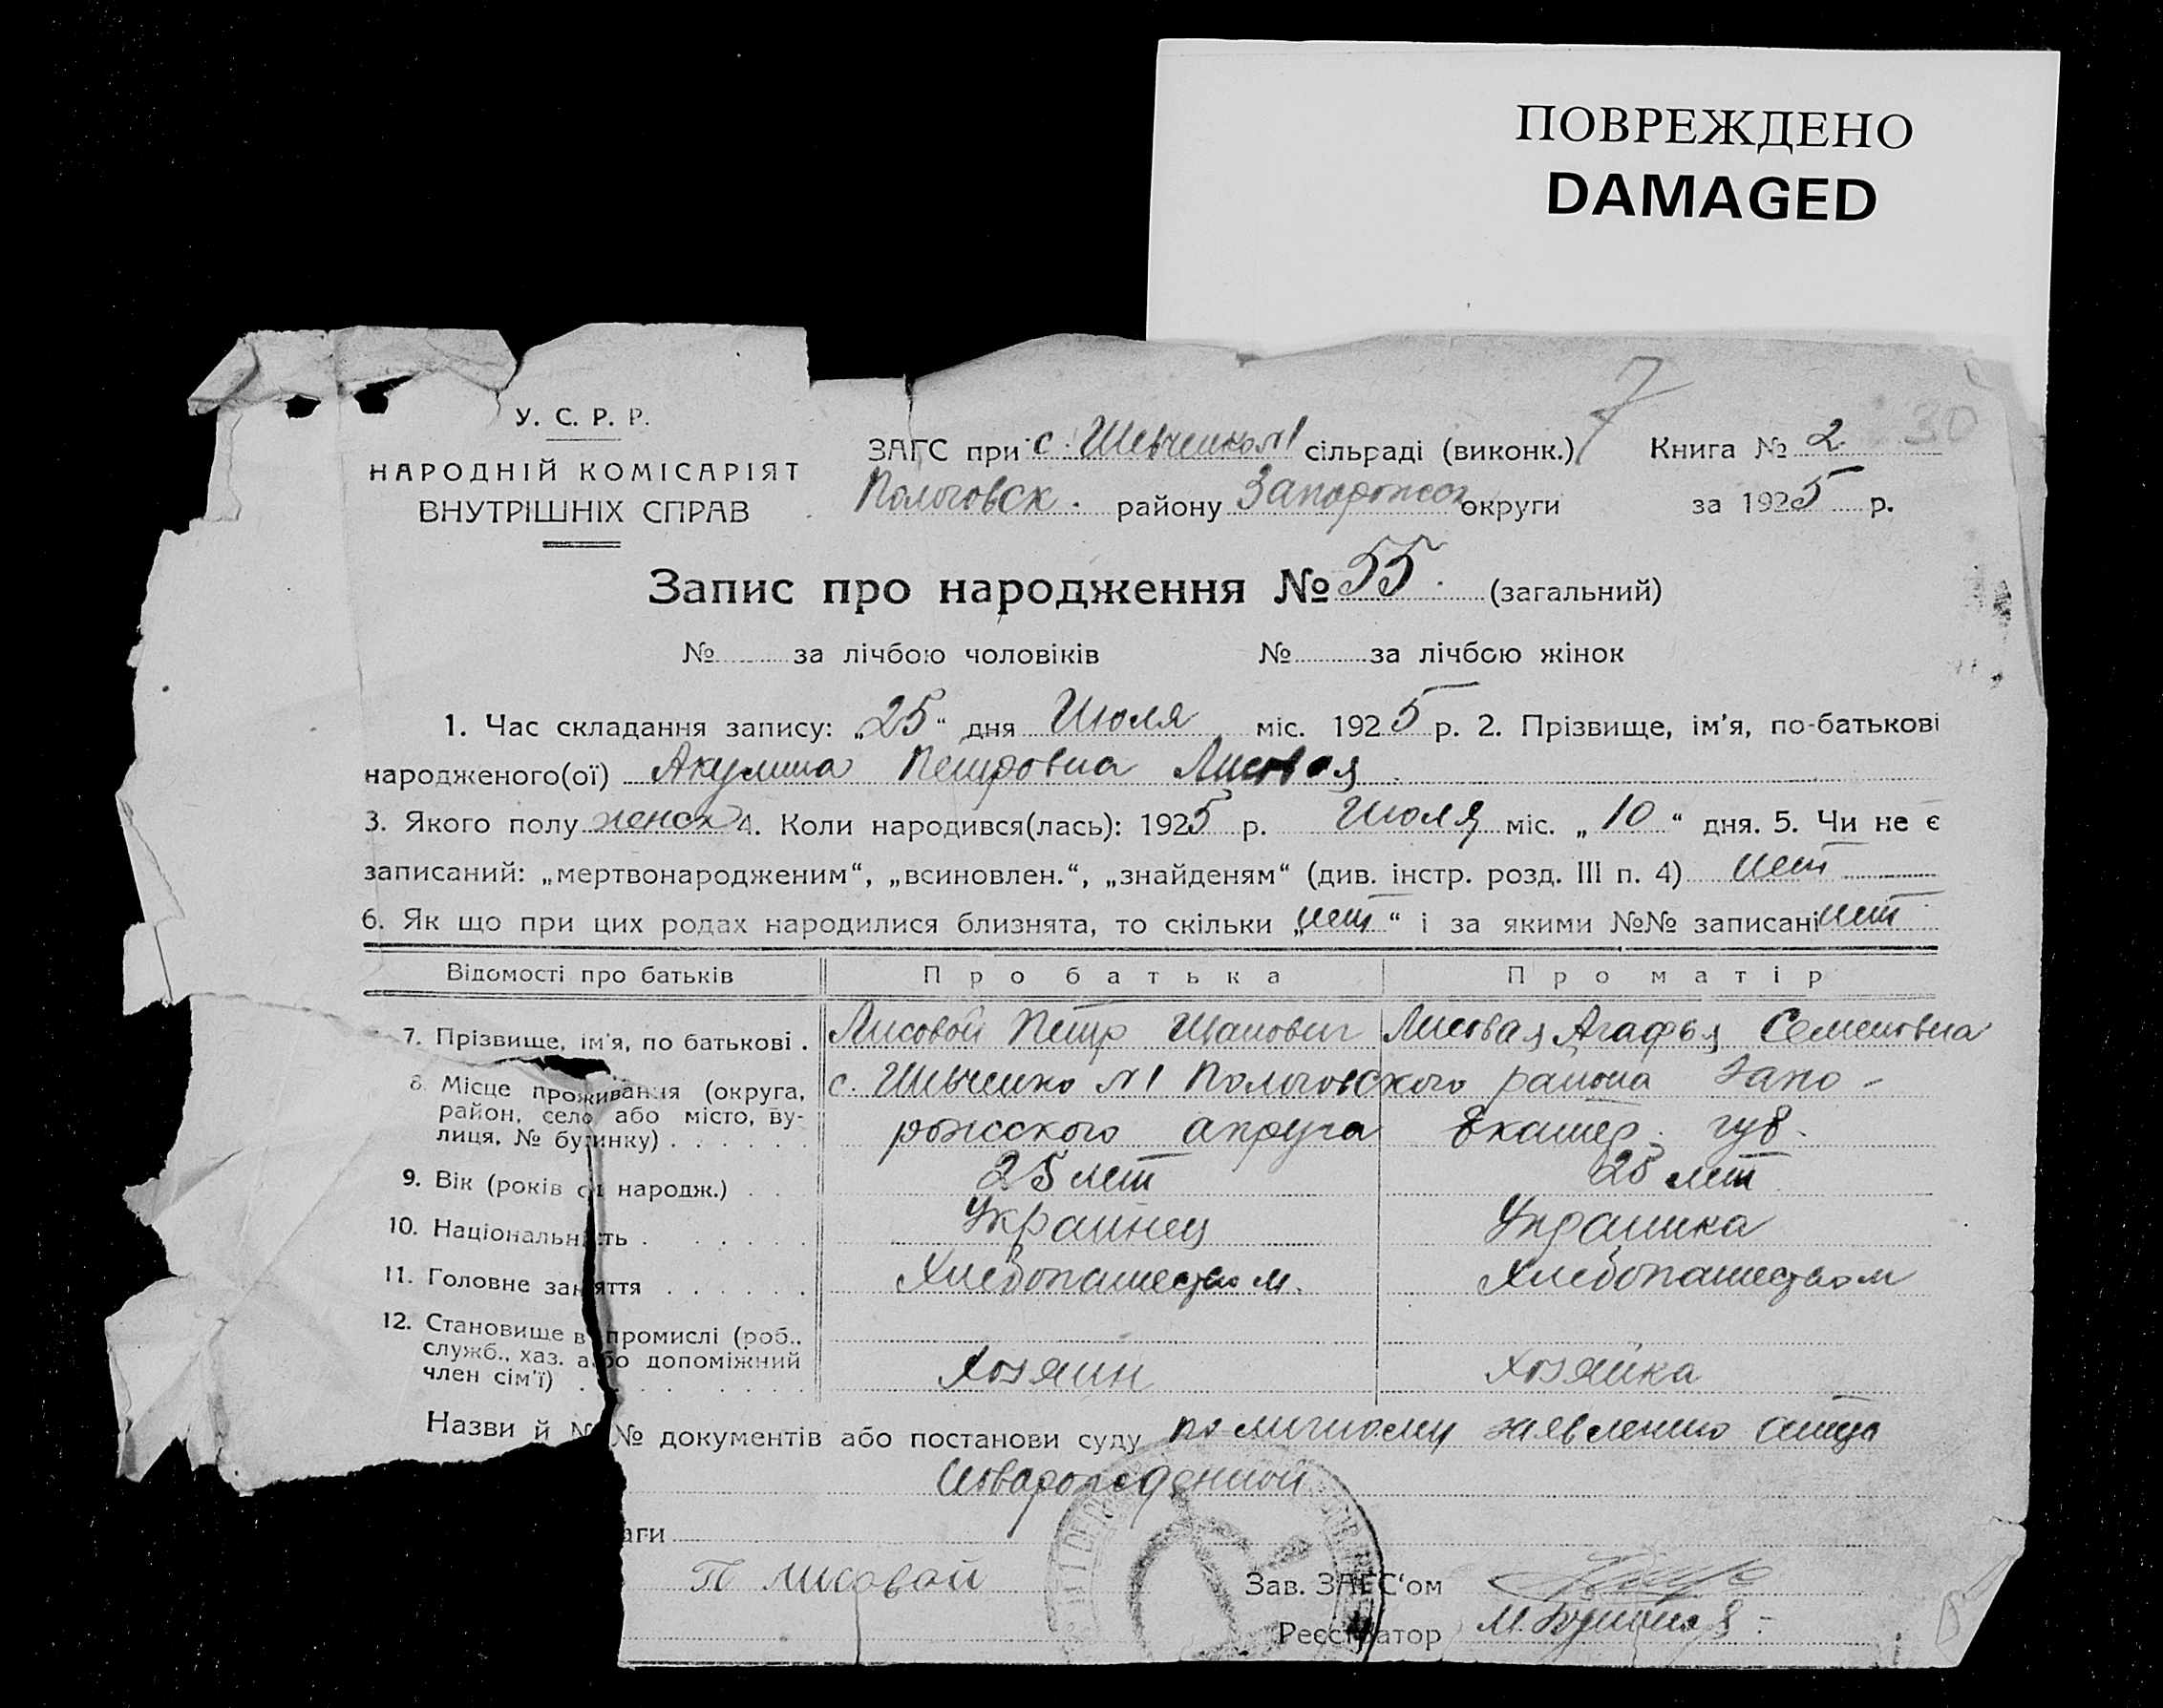 ПОВРЕЖДЕНО
DAMAGED
7
30
У. С. Р. Р.
НАРОДНІЙ КОМІСАРІЯТ
ВНУТРІШНІХ СПРАВ
ЗАГС при с. Шевченко №1 сільраді (виконк.)
Книга № 2
Пологовск. району Запорожск округи
за 1925 р.
Запис про народження № 55. (загальний)
№ за лічбою чоловіків № за лічбою жінок
1. Час складання запису: „25“ дня Июля міс. 1925 р. 2. Прізвище, ім'я, по-батькові
народженого(ої) Акулина Петровна Лисовая
3. Якого полу женск 4. Коли народився(лась): 1925 р. Июля міс. „10“ дня. 5. Чи не є
записаний: „мертвонародженим“, „всиновлен.“, „знайденям“ (див. інстр. розд. III п. 4) нет
6. Як що при цих родах народилися близнята, то скільки „нет“ і за якими №№ записані нет
Відомості про батьків Про батька Про матір
7. Прізвище, ім'я, по батькові . Лисовой Петр Иванович Лисовая Агафья Семеновна
8. Місце проживання (округа, с. Шевченко №1 Пологовского района Запо-
район, село або місто, ву-
лиця, № будинку) . . . . . . рожского округа Екатер. губ.
9. Вік (років од народж.) . . 25 лет 25 лет
10. Національність . . . . . . Украинец Украинка
11. Головне заняття . . . . . . Хлебопашеством. Хлебопашеством
12. Становище в промислі (роб.,
служб., хаз. або допоміжний
член сім'ї) . . . . . . Хозяин Хозяйка
Назви й №№ документів або постанови суду по личному заявлению отца
Новарожденной
аги
П Лисовой Зав. ЗАГС'ом
Реєстратор